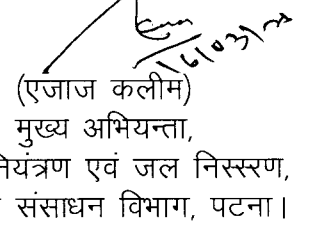 (एजाज कलीम)
मुख्य अभियन्ता,
नियंत्रण एवं जल निस्स्रण,
संसाधन विभाग, पटना।